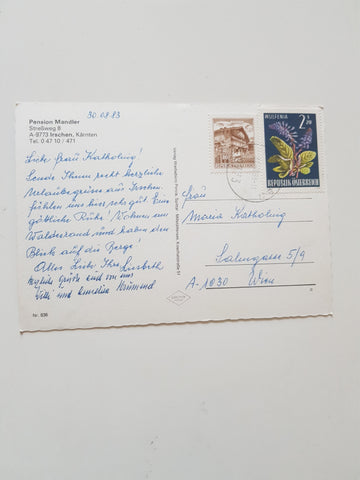 Pension Mandler
Streßweg 8
A-9773 Irschen, Kärnten
Tel. 0 47 10 / 471
30.08.83
Liebe Frau Katholnig!
Sende Ihnen recht herzliche
Urlaubsgrüsse aus Irschen.
Fühlen uns hier sehr gut. Eine
göttliche Ruhe! Wohnen am
Waldesrand und haben den
Blick auf die Berge!
Alles Liebe Ihre Lisbeth
Herzliche Grüße auch von uns
und
Nr. 836
WULFENIA
2.20
REPUBLIK ÖSTERREICH
Frau
Maria Katholnig
Salmgasse 5/9
A-1030 Wien